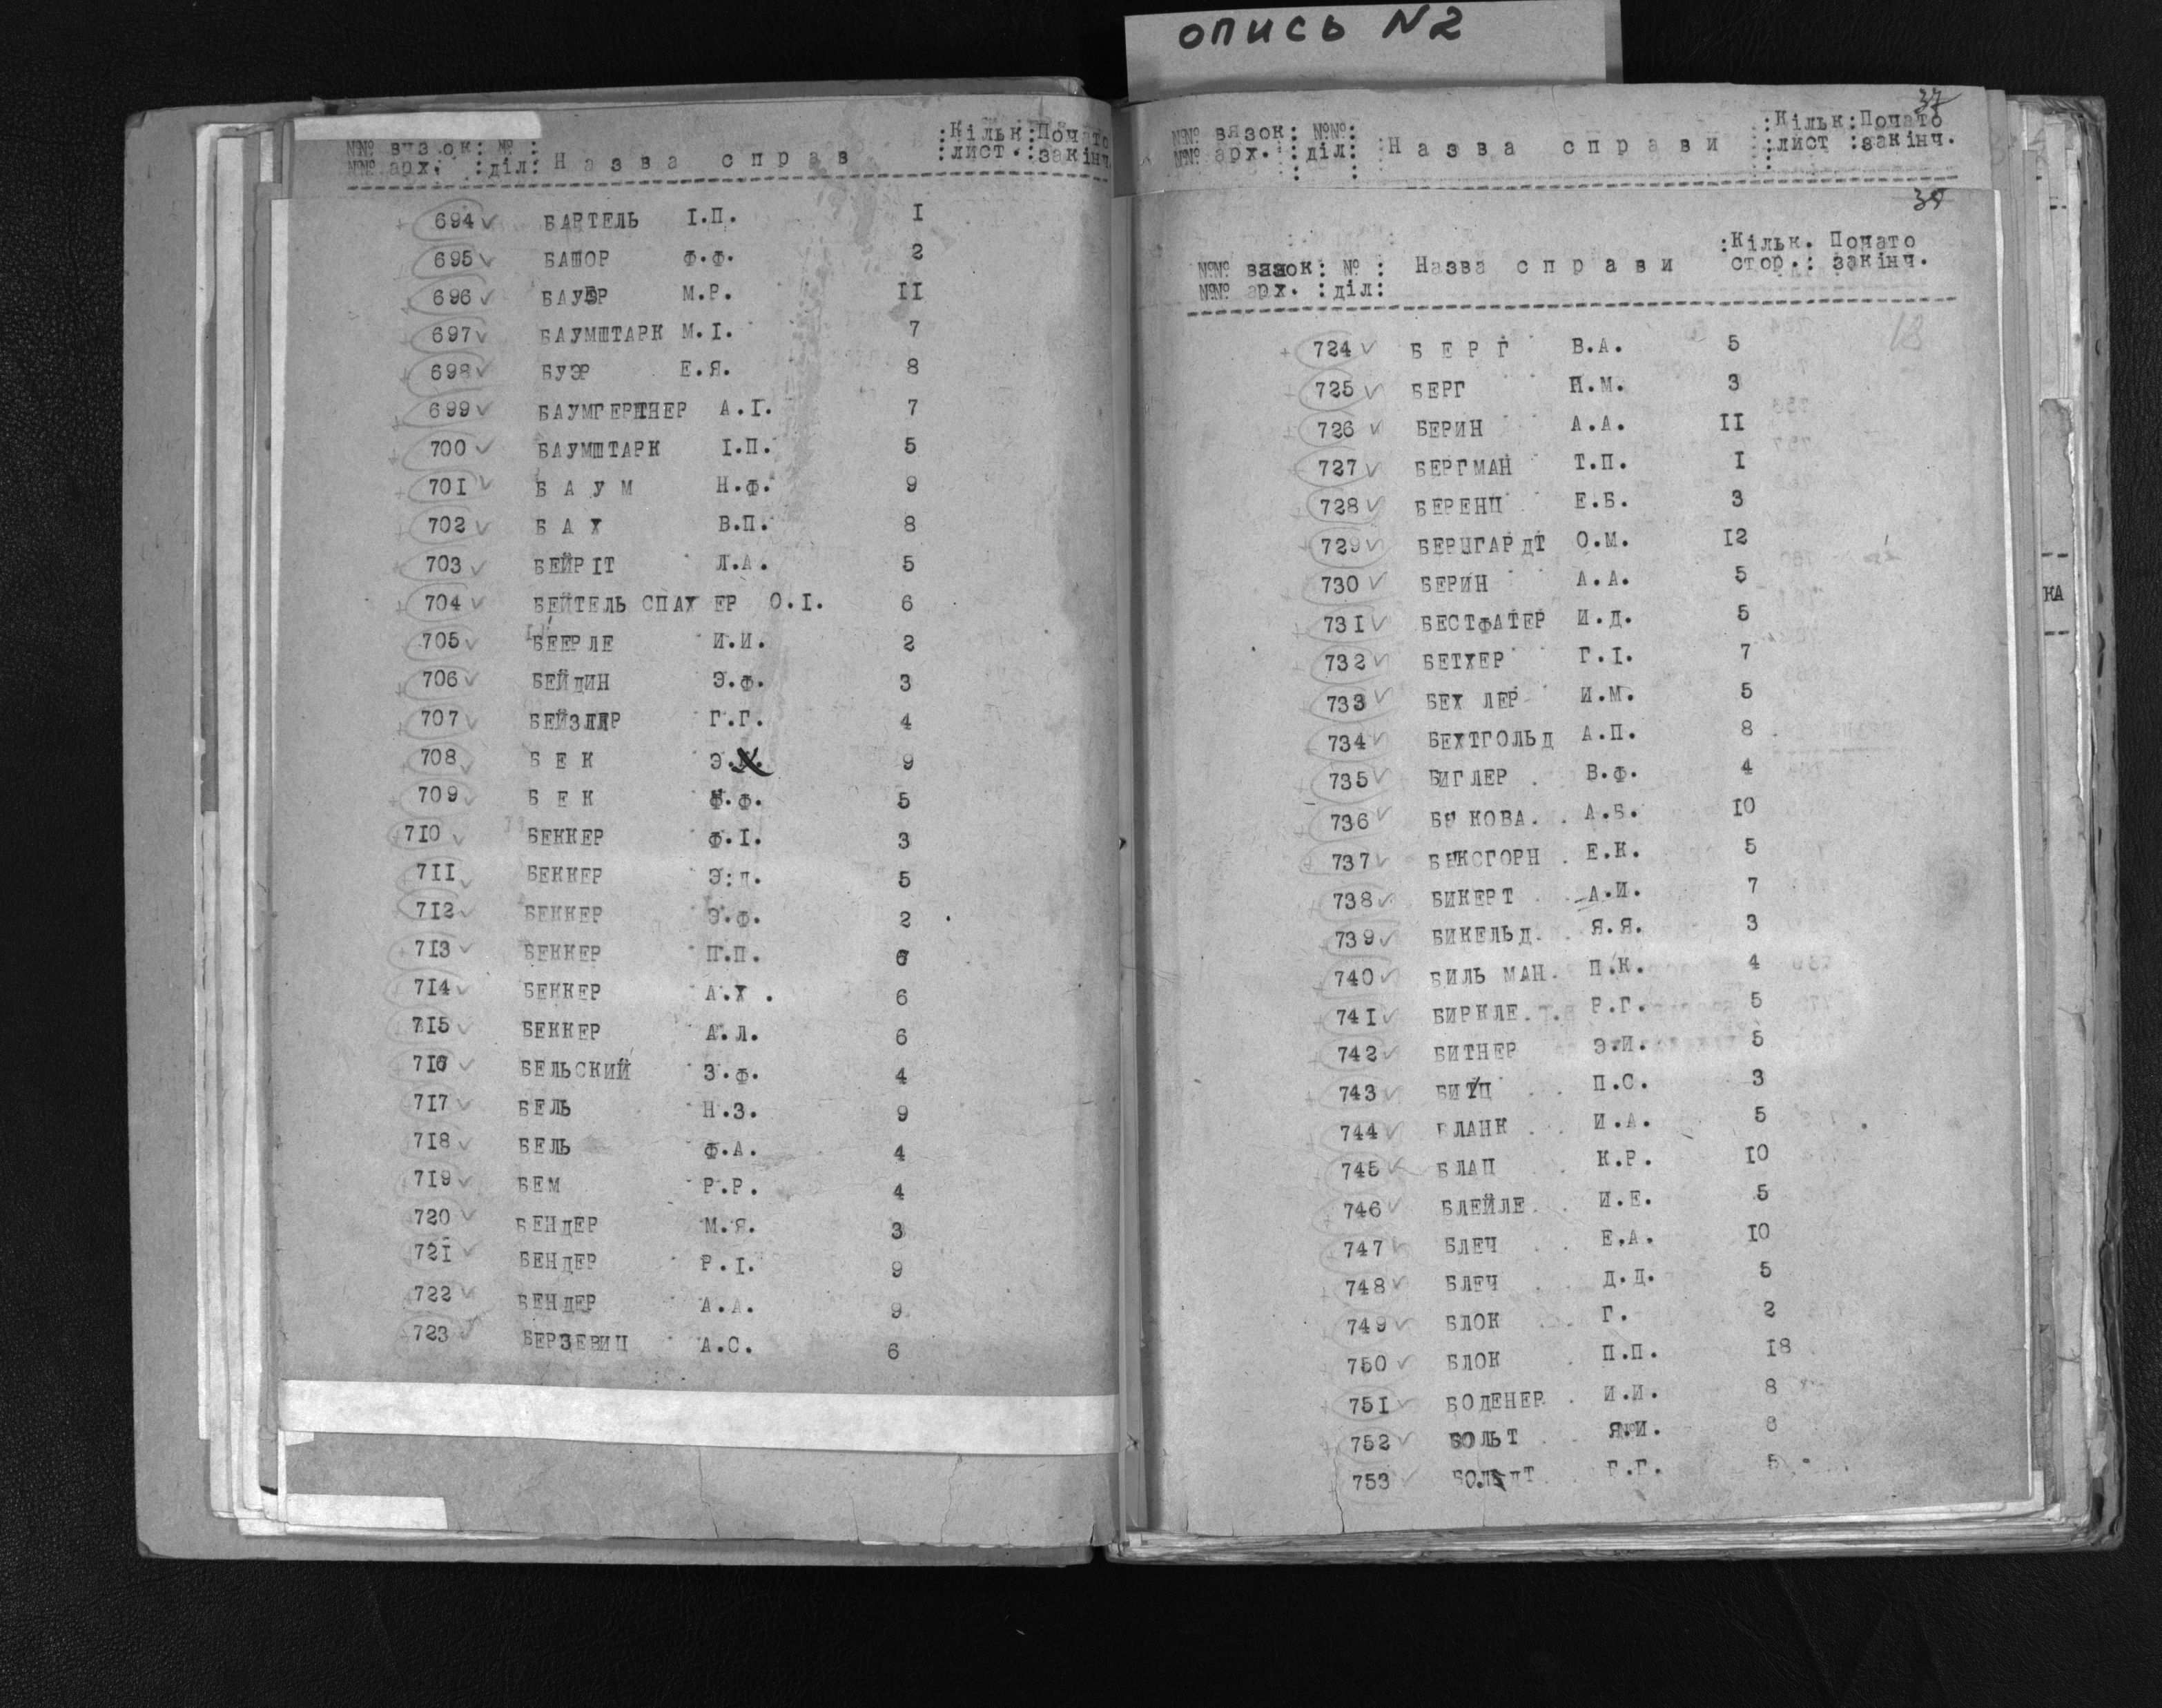 опись N2
№№ вязок: № : Кільк:Почато
№№ арх. :діл: Назва справ :лист.:закінч
694 БАРТЕЛЬ І.П. I
695 БАШОР Ф.Ф. 2
696 БАУЭР М.Р. II
697 БАУМШТАРК М.І. 7
698 БУЭР Е.Я. 8
699 БАУМГЕРТНЕР А.І. 7
700 БАУМШТАРК І.П. 5
70I БАУМ Н.Ф. 9
702 БАХ В.П. 8
703 БЕЙРІТ Л.А. 5
704 БЕЙТЕЛЬСПАХЕР О.І. 6
705 БЕЕРЛЕ И.И. 2
706 БЕЙДИН Э.Ф. 3
707 БЕЙЗЛЕР Г.Г. 4
708 БЕК Э. 9
709 БЕК Ф.Ф. 5
7I0 БЕККЕР Ф.І. 3
7II БЕККЕР Э.Д. 5
7I2 БЕККЕР Э.Ф. 2
7I3 БЕККЕР П.П.
7I4 БЕККЕР А.Х. 6
7I5 БЕККЕР А.Л. 6
7I6 БЕЛЬСКИЙ З.Ф. 4
7I7 БЕЛЬ Н.З. 9
7I8 БЕЛЬ Ф.А. 4
7I9 БЕМ Р.Р. 4
720 БЕНДЕР М.Я. 3
72I БЕНДЕР Р.І. 9
722 БЕНДЕР А.А. 9
723 БЕРЗЕВИЦ А.С. 6
37
№№ вязок: №№: :Кільк:Почато
№№ арх. :діл: Назва справи :лист :закінч.
38
:Кільк. Почато
№№ вязок: № : Назва справи стор.: закінч.
№№ арх. :діл:
18
724 БЕРГ В.А. 5
725 БЕРГ Н.М. 3
726 БЕРИН А.А. II
727 БЕРГМАН Т.П. I
728 БЕРЕНЦ Е.Б. 3
729 БЕРНГАРДТ О.М. I2
730 БЕРИН А.А. 5
73I БЕСТФАТЕР И.Д. 5
732 БЕТХЕР Г.І. 7
733 БЕХЛЕР И.М. 5
734 БЕХТГОЛЬД А.П. 8
735 БИГЛЕР В.Ф. 4
736 БЫКОВА А.Б. I0
737 БЫКСГОРН Е.К. 5
738 БИКЕРТ А.И. 7
739 БИКЕЛЬД Я.Я. 3
740 БИЛЬМАН П.К. 4
74I БИРКЛЕ Р.Г. 5
742 БИТНЕР Э.И. 5
743 БИТЦ П.С. 3
744 БЛАНК И.А. 5
745 БЛАЦ К.Р. I0
746 БЛЕЙЛЕ И.Е. 5
747 БЛЕЧ Е.А. I0
748 БЛЕЧ Д.Д. 5
749 БЛОК Г. 2
750 БЛОК П.П. I8
75I БОДЕНЕР И.И. 8
752 БОЛЬТ Я.И. 8
753 Г.Г. 5
КА